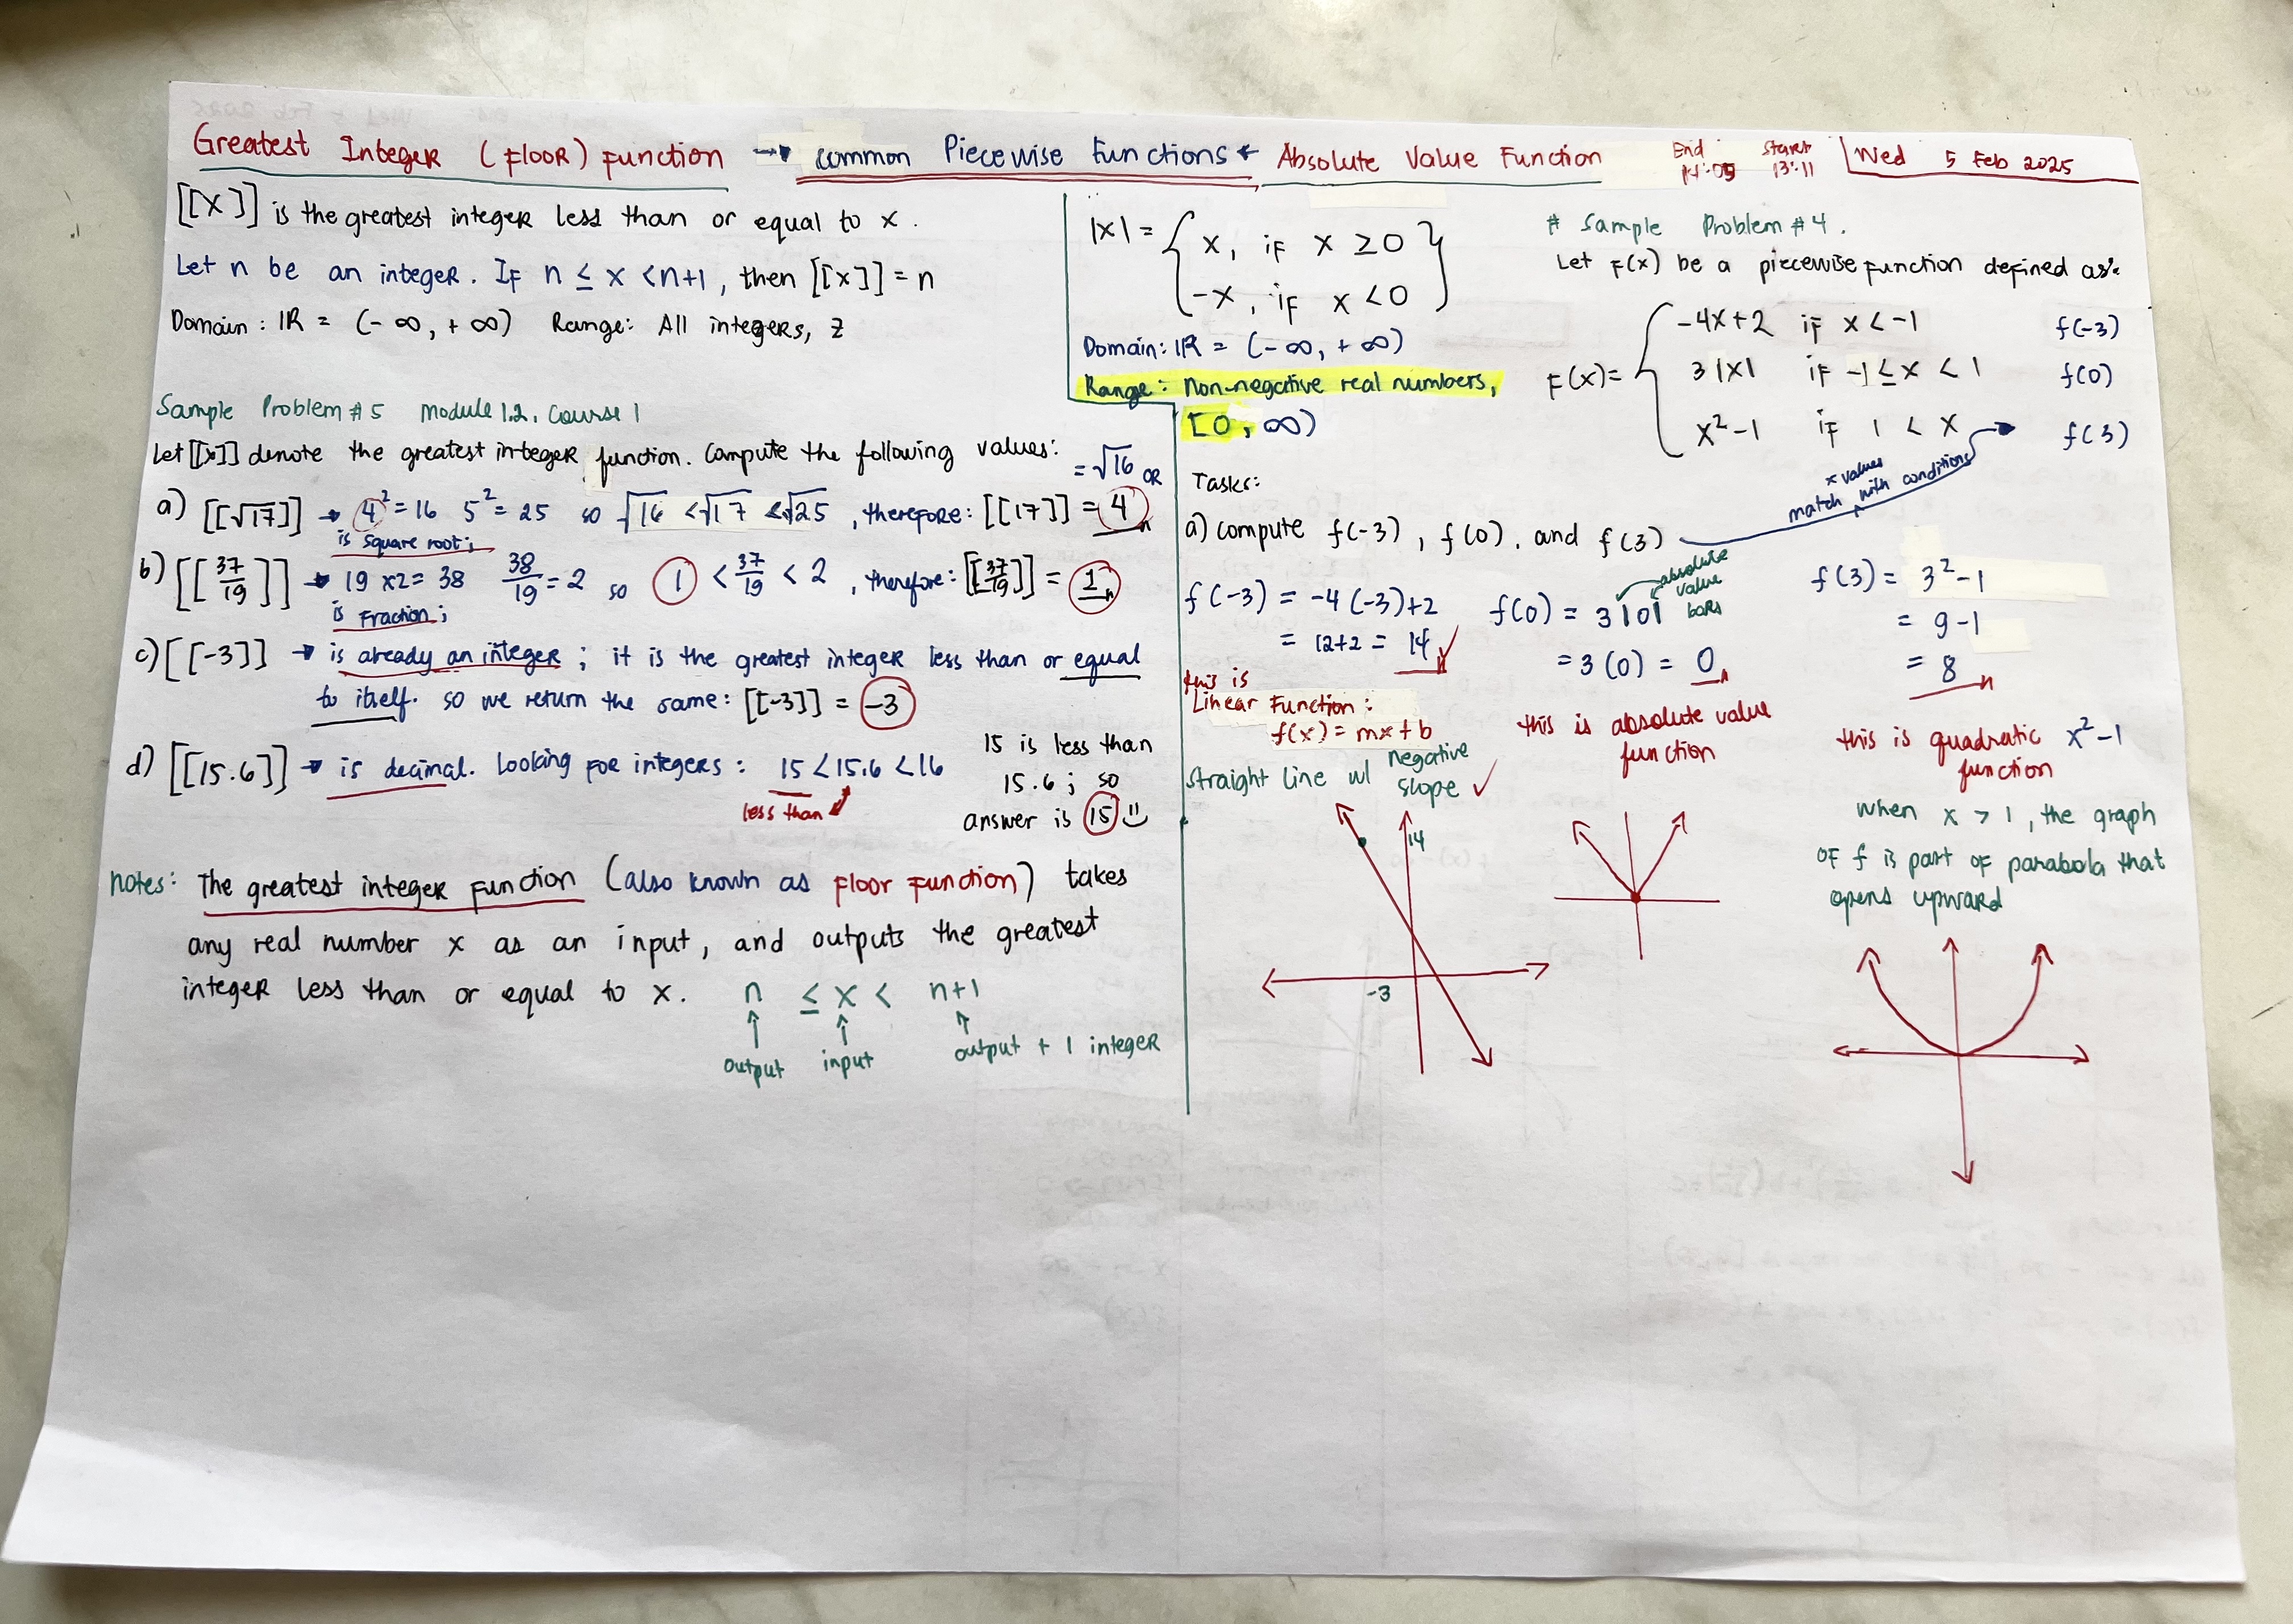 Greatest Integer (Floor) Function → common Piecewise Functions ← Absolute Value Function
End 14:05 Start 13:11
Wed 5 Feb 2025
[[x]] is the greatest integer less than or equal to x.
Let n be an integer. If n ≤ x < n+1, then [[x]] = n
Domain: IR = (-∞, +∞) Range: All integers, Z
Sample Problem #5 Module 1.2, Course 1
Let [[x]] denote the greatest integer function. Compute the following values:
= √16 OR
a) [[√17]] → 4² = 16 5² = 25 so √16 < √17 < √25, therefore: [[17]] = 4
is square root;
b) [[37/19]] → 19 x2 = 38 38/19 = 2 so 1 < 37/19 < 2, therefore: [[37/19]] = 1
is Fraction;
c) [[-3]] → is already an integer; it is the greatest integer less than or equal
to itself. so we return the same: [[-3]] = -3
d) [[15.6]] → is decimal. Looking for integers: 15 < 15.6 < 16
less than
15 is less than
15.6; so
answer is 15
notes: The greatest integer function (also known as floor function) takes
any real number x as an input, and outputs the greatest
integer less than or equal to x. n ≤ x < n+1
output input output + 1 integer
|x| = { x, if x ≥ 0
-x, if x < 0 }
Domain: IR = (-∞, +∞)
Range: Non-negative real numbers,
[0, ∞)
# Sample Problem #4.
Let F(x) be a piecewise function defined as:
F(x) = { -4x+2 if x < -1 f(-3)
3|x| if -1 ≤ x < 1 f(0)
x²-1 if 1 < x f(3)
x values
match with conditions
Tasks:
a) compute f(-3), f(0), and f(3)
f(-3) = -4(-3)+2
= 12+2 = 14
this is
Linear Function:
f(x) = mx+b
Straight Line w/ negative slope ✓
14
-3
f(0) = 3|0|
absolute value bars
= 3(0) = 0
this is absolute value
function
f(3) = 3²-1
= 9-1
= 8
this is quadratic x²-1
function
when x > 1, the graph
OF f is part of parabola that
opens upward